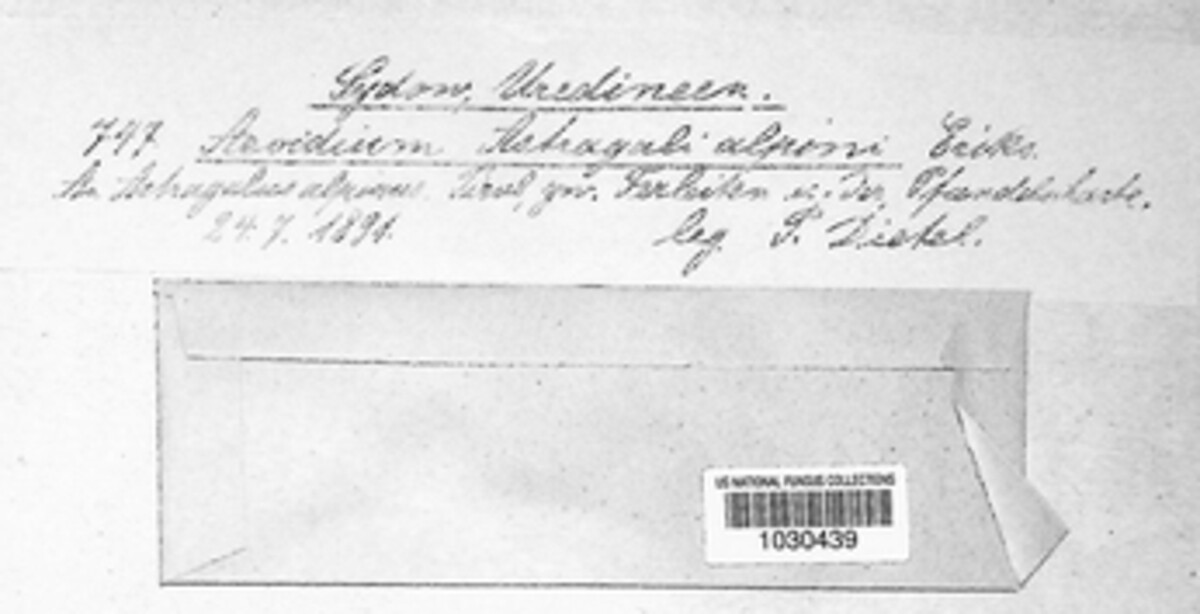 Sydow, Uredineen.
747 Aecidium Astragali alpini Eriks.
An Astragalus alpinus. Tirol, zw. Ferleiten u. der Pfandelscharte.
24. 7. 1891. leg. P. Dietel.
US NATIONAL FUNGUS COLLECTIONS
1030439